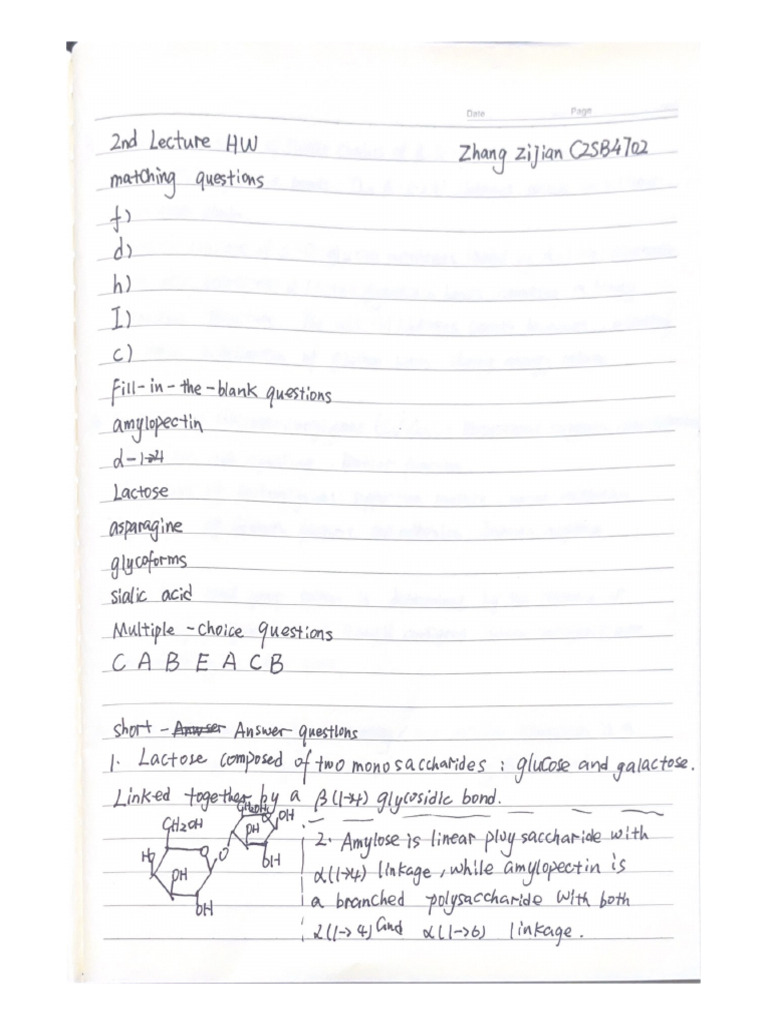 Date Page
2nd Lecture HW
Zhang Zijian C2SB4702
matching questions
f)
d)
h)
I)
c)
Fill-in-the-blank questions
amylopectin
α-1→4
Lactose
asparagine
glycoforms
sialic acid
Multiple-choice Questions
C A B E A C B
short- Answer questions
1. Lactose composed of two monosaccharides: glucose and galactose.
Linked together by a β(1→4) glycosidic bond.
CH2OH
OH
CH2OH
OH
OH
H
O
OH
OH
2. Amylose is linear pluysaccharide with
α(1→4) linkage, while amylopectin is
a branched polysaccharide with both
α(1→4) and α(1→6) linkage.